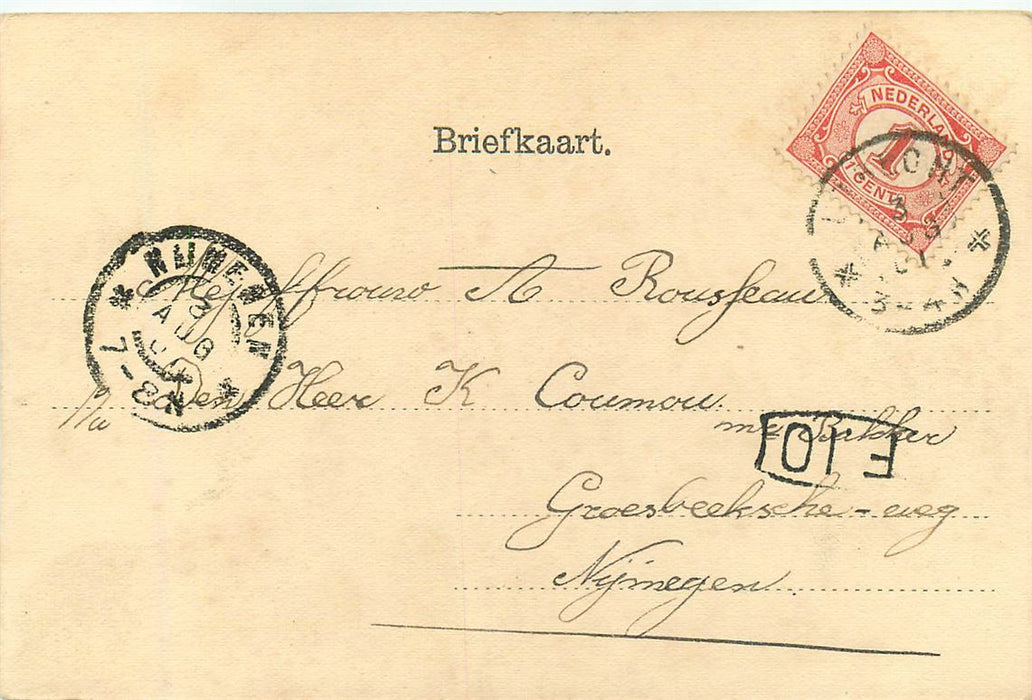 Briefkaart.
NEDERLAND
1
1 CENT
3
AUG
3-4N
NIJMEGEN
3
AUG
7-8N
Mejuffrouw A Rousseau
p/a den Heer K Coumou
Bakker
Groesbeeksche-weg
Nijmegen
F 10